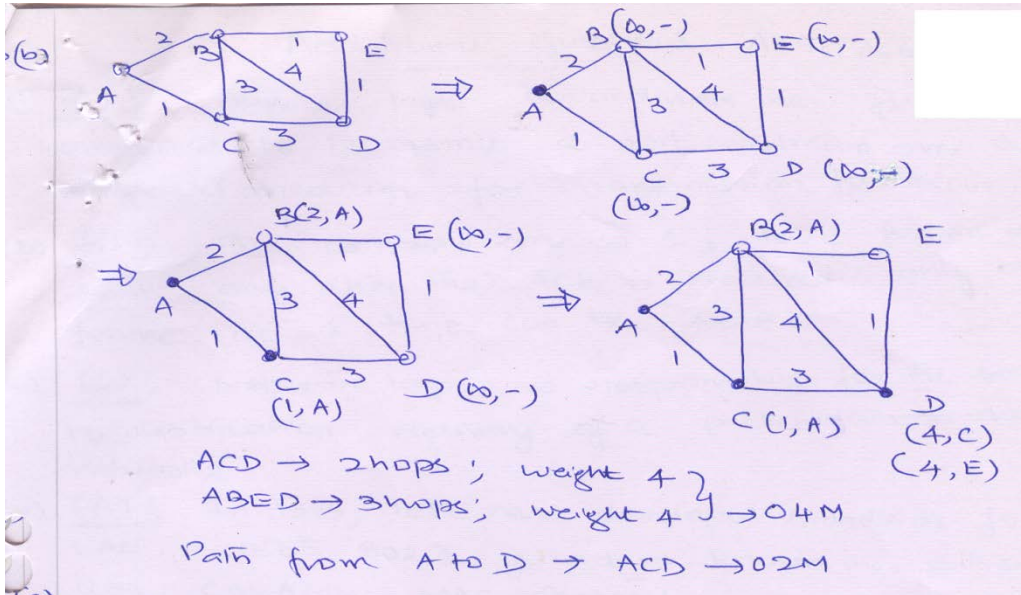 (b)
2 B 1 E
A 3 4 1
1 C 3 D
⇒
B (∞,-) E (∞,-)
2 1
A 3 4 1
1 C 3 D (∞,-)
(∞,-)
⇒
B(2,A) E (∞,-)
2 1
A 3 4 1
1 3
C D (∞,-)
(1,A)
⇒
B(2,A) E
2 1
A 3 4 1
1 3
C (1,A) D
(4,C)
(4,E)
ACD → 2hops; weight 4 }
ABED → 3hops; weight 4 } → 04M
Path from A to D → ACD → 02M